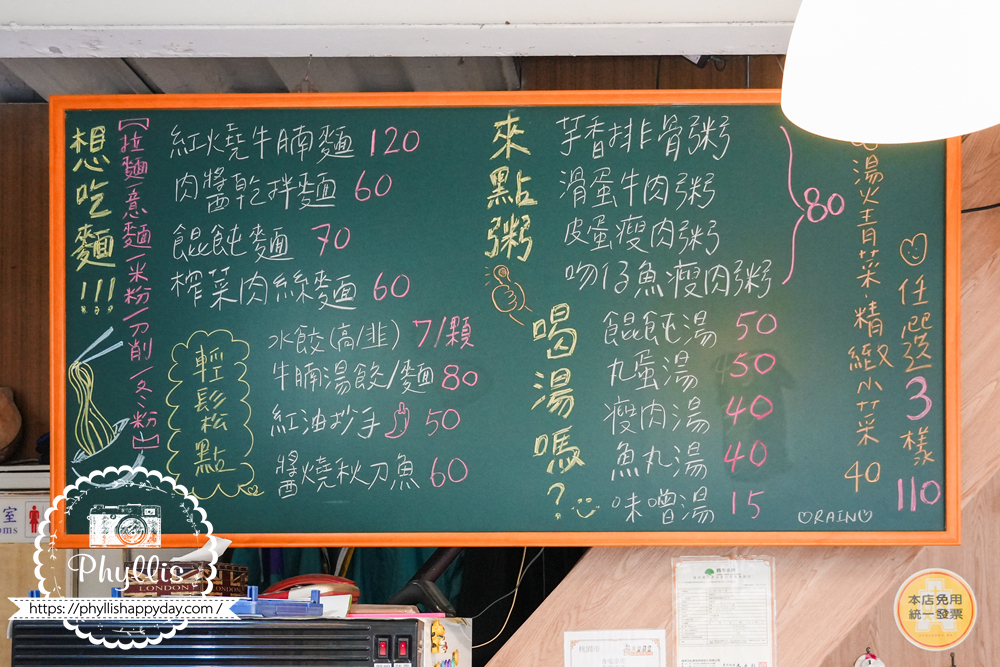 想吃麵!!!
【拉麵/意麵/米粉/刀削/冬粉】
紅燒牛腩麵 120
肉醬乾拌麵 60
餛飩麵 70
榨菜肉絲麵 60
輕鬆點
水餃(高/韭) 7/顆
牛腩湯餃/麵 80
紅油抄手 50
醬燒秋刀魚 60
來點粥
芋香排骨粥
滑蛋牛肉粥
皮蛋瘦肉粥
吻仔魚瘦肉粥
80
喝湯嗎?
餛飩湯 50
丸蛋湯 50
瘦肉湯 40
魚丸湯 40
味噌湯 15
湯燙青菜.精緻小菜 40
任選3樣 110
RAIN
室
oms
Phyllis
LONDON
LONDON
https://phyllishappyday.com/
本店免用
統一發票